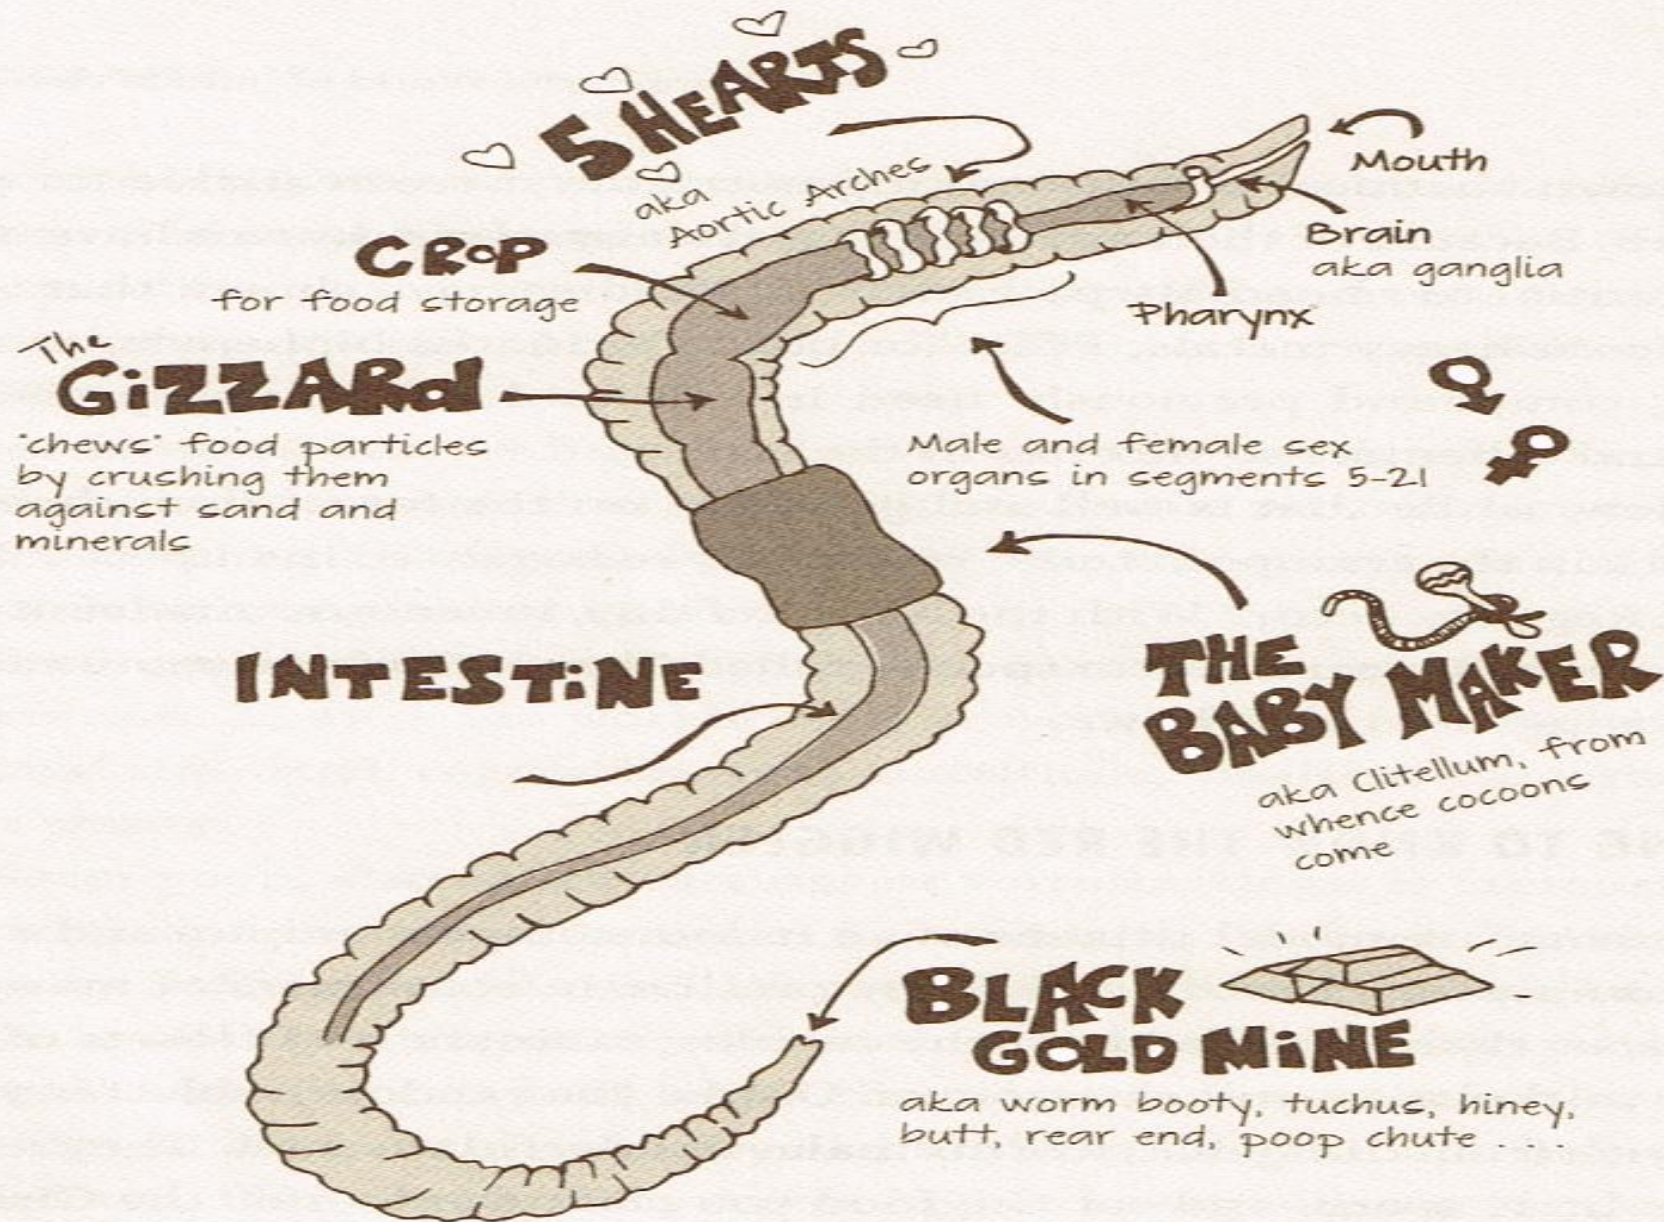 5 HEARTS
aka
Aortic Arches
Mouth
Brain
aka ganglia
Pharynx
CROP
for food storage
The
GiZZARd
'chews' food particles
by crushing them
against sand and
minerals
Male and female sex
organs in segments 5-21
INTESTiNE
THE
BABY MAKER
aka Clitellum, from
whence cocoons
come
BLACK
GOLD MiNE
aka worm booty, tuchus, hiney,
butt, rear end, poop chute . . .